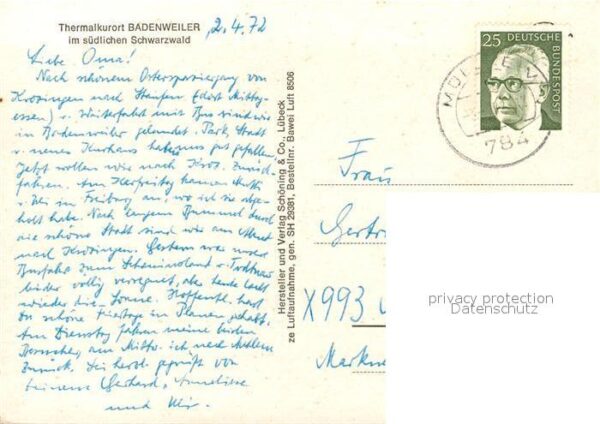 Thermalkurort BADENWEILER
im südlichen Schwarzwald
2.4.72
Liebe Oma!
Nach schönem Osterspaziergang von
Krozingen nach Staufen (dort Mittag-
essen) u. Weiterfahrt mit Bus sind wir
in Badenweiler gelandet. Park, Stadt
u. neues Kurhaus haben uns gut gefallen.
Jetzt wollen wir nach Kroz. zurück-
fahren. Am Karfreitag kamen
u. Uli in Freiburg an, wo ich sie abge-
holt habe. Nach langem Bummel durch
die schöne Stadt sind wir am Abend
nach Krozingen. Gestern war unser
Busfahrt zum Schauinsland u. Todtnau
leider völlig verregnet, aber heute lacht
wieder die Sonne. Hoffentl. hast
Du schöne Feiertage in Plauen gehabt.
Am Dienstag fahren meine beiden
am Mittw. ich nach
zurück. Sei herzl. gegrüßt von
Deinem Gerhard, Anneliese
und Uli.
Hersteller und Verlag Schöning & Co., Lübeck
ze Luftaufnahme, gen. SH 29381, Bestellnr. Bawei Luft 8506
25 DEUTSCHE BUNDESPOST
784
Frau
Gertr
X993
Markne
privacy protection
Datenschutz